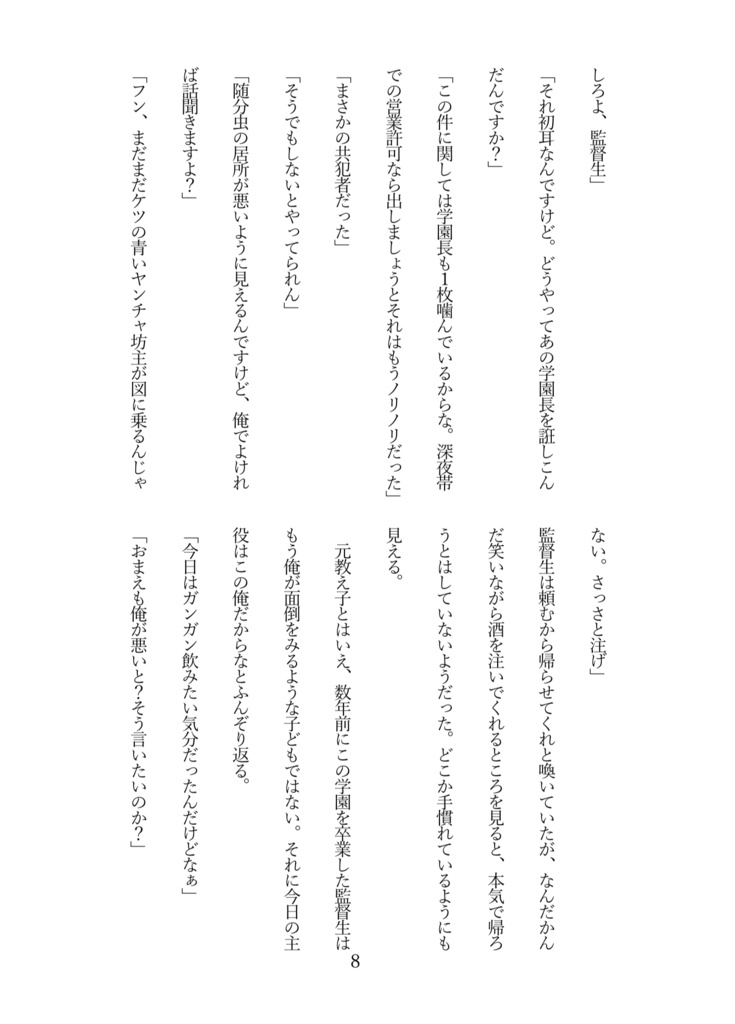 しろよ、監督生」
「それ初耳なんですけど。どうやってあの学園長を誑しこん
だんですか？」
「この件に関しては学園長も１枚噛んでいるからな。深夜帯
での営業許可なら出しましょうとそれはもうノリノリだった」
「まさかの共犯者だった」
「そうでもしないとやってられん」
「随分虫の居所が悪いように見えるんですけど、俺でよけれ
ば話聞きますよ？」
「フン、まだまだケツの青いヤンチャ坊主が図に乗るんじゃ
ない。さっさと注げ」
監督生は頼むから帰らせてくれと喚いていたが、なんだかん
だ笑いながら酒を注いでくれるところを見ると、本気で帰ろ
うとはしていないようだった。どこか手慣れているようにも
見える。
　元教え子とはいえ、数年前にこの学園を卒業した監督生は
もう俺が面倒をみるような子どもではない。それに今日の主
役はこの俺だからなとふんぞり返る。
「今日はガンガン飲みたい気分だったんだけどなぁ」
「おまえも俺が悪いと？そう言いたいのか？」
8